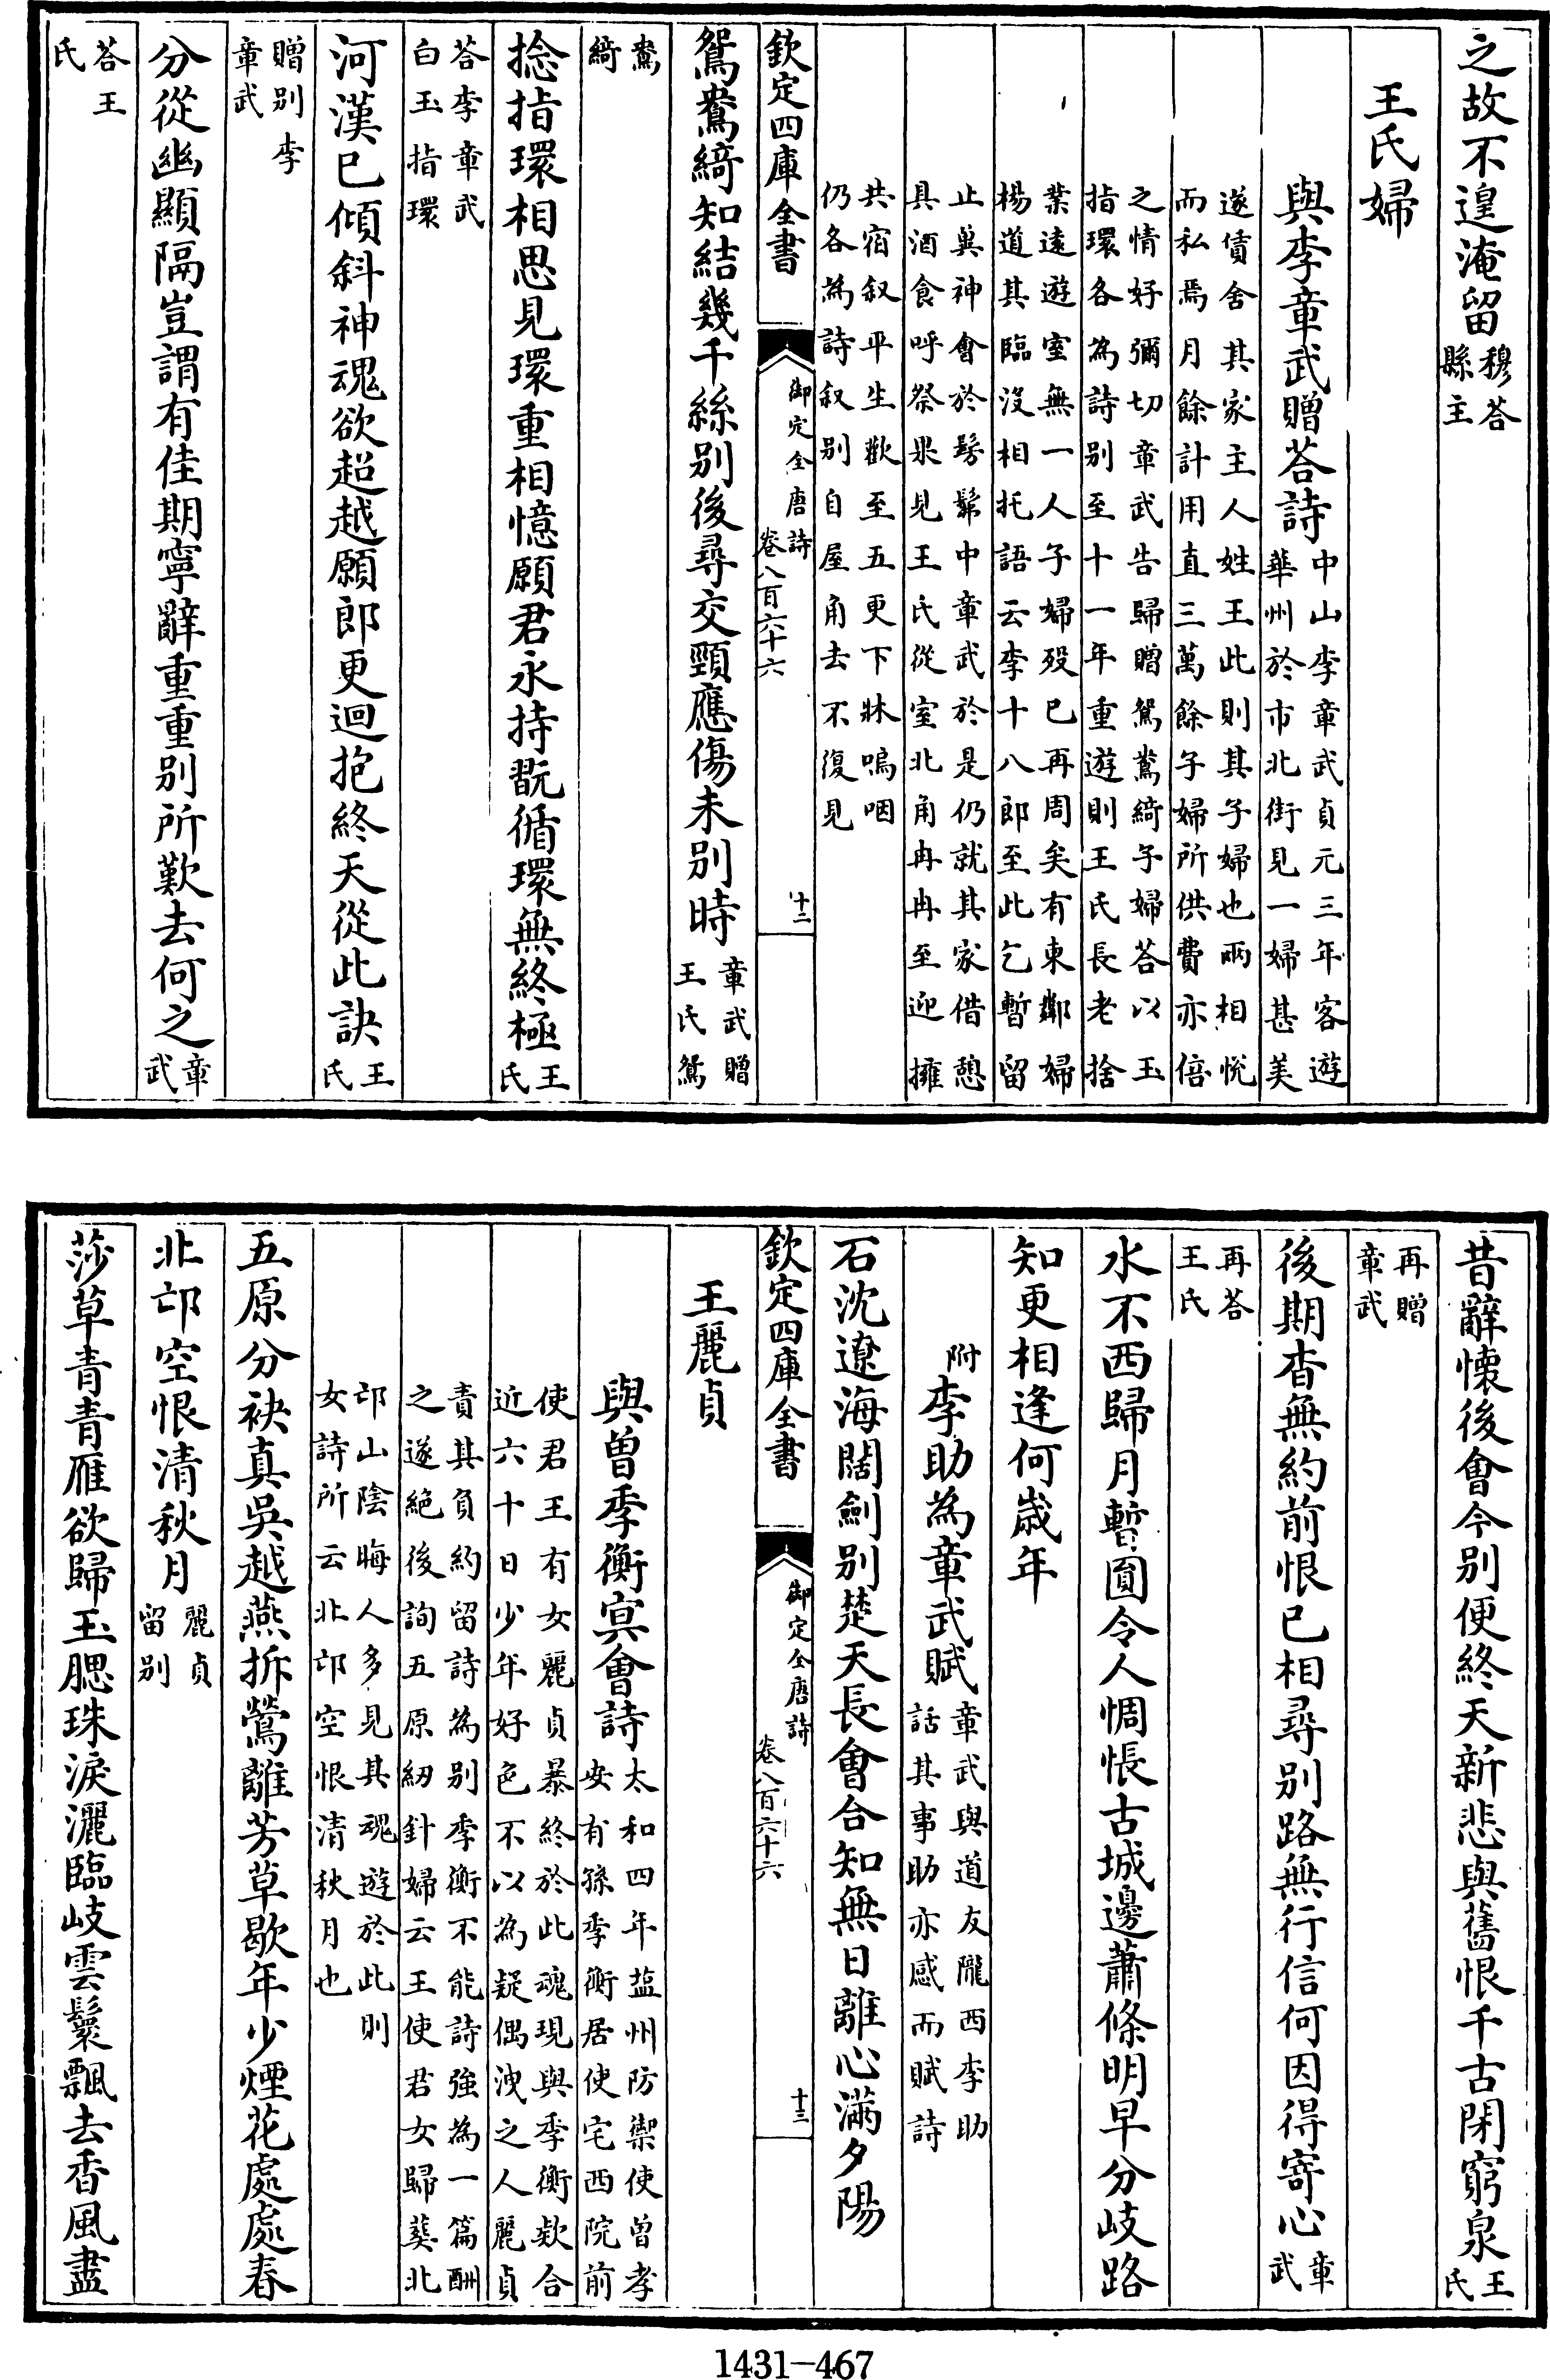 之故不遑淹留穆荅縣主
王氏婦
與李章武贈荅詩中山李章武貞元三年客遊華州於市北街見一婦甚美
遂賃舍其家主人姓王此則其子婦也兩相悅而私焉月餘計用直三萬餘子婦所供費亦倍
之情好彌切章武告歸贈鴛鴦綺子婦荅以玉指環各為詩別至十一年重遊則王氏長老捨
業遠遊室無一人子婦歿已再周矣有東鄰婦楊道其臨沒相托語云李十八郎至此乞暫留
止冀神會於髣髴中章武於是仍就其家借憩具酒食呼祭果見王氏從室北角冉冉至迎擁
共宿叙平生歡至五更下牀嗚咽仍各為詩叙別自屋角去不復見
欽定四庫全書 御定全唐詩 卷八百六十六 十二
鴛鴦綺知結幾千絲別後尋交頸應傷未別時章武贈王氏鴛
鴦綺
捻指環相思見環重相憶願君永持翫循環無終極王氏
荅李章武白玉指環
河漢已傾斜神魂欲超越願郎更迴抱終天從此訣王氏
贈別李章武
分從幽顯隔豈謂有佳期寧辭重重別所歎去何之章武
荅王氏
昔辭懷後會今別便終天新悲與舊恨千古閉窮泉王氏
再贈章武
後期杳無約前恨已相尋別路無行信何因得寄心章武
再荅王氏
水不西歸月暫圓令人惆悵古城邊蕭條明早分岐路
知更相逢何歲年
附李助為章武賦章武與道友隴西李助話其事助亦感而賦詩
石沈遼海闊劍別楚天長會合知無日離心滿夕陽
欽定四庫全書 御定全唐詩 卷八百六十六 十三
王麗貞
與曾季衡冥會詩太和四年鹽州防禦使曾孝安有孫季衡居使宅西院前
使君王有女麗貞暴終於此魂現與季衡欵合近六十日少年好色不以為疑偶洩之人麗貞
責其負約留詩為別季衡不能詩強為一篇酬之遂絕後詢五原紉針婦云王使君女歸葬北
邙山陰晦人多見其魂遊於此則女詩所云北邙空恨清秋月也
五原分袂真吳越燕拆鶯離芳草歇年少煙花處處春
北邙空恨清秋月麗貞留別
莎草青青雁欲歸玉腮珠淚灑臨岐雲鬟飄去香風盡
1431—467